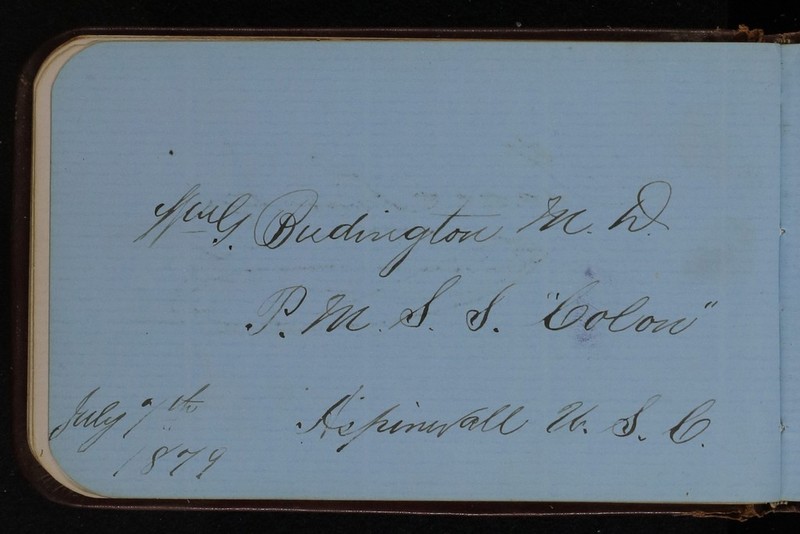 Wm G. Budington M. D.
P. M. S. S. "Colon"
Aspinwall U. S. C.
July 7th
1879